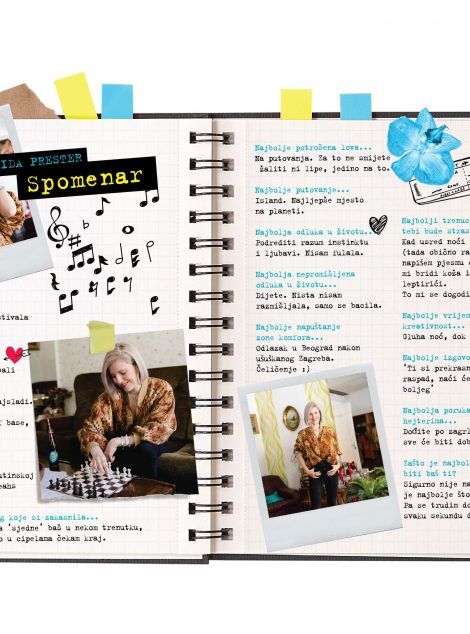 IDA PRESTER
Spomenar
stivala
pali
ajsladi.
' base,
utinskoj
eahs
g koje si zakasnila...
a 'sjedne' baš u nekom trenutku,
o u cipelama čekam kraj.
Najbolje potrošena lova...
Na putovanja. Za to ne smijete
žaliti ni lipe, jedino na to.
Najbolje putovanje...
Island. Najljepše mjesto
na planeti.
Najbolja odluka u životu...
Podrediti razum instinktu
i ljubavi. Nisam fulala.
Najbolja nepromišljena
odluka u životu...
Dijete. Ništa nisam
razmišljala, samo se bacila.
Najbolje napuštanje
zone komfora...
Odlazak u Beograd nakon
ušuškanog Zagreba.
Čeličenje :)
Najbolji trenuc
tebi bude stras
Kad usred noći
(tada obično ra
napišem pjesmu o
mi bridi koža i
leptirići.
To mi se dogodi
Najbolje vrijem
kreativnost...
Gluha noć, dok
Najbolje izgovo
'Ti si prekrasn
raspad, naći će
boljeg'
Najbolja poruka
hejterima...
Dođite po zagrl
sve će biti dob
Zašto je najbol
biti baš ti?
Sigurno nije na
je najbolje što
Pa se trudim do
svaku sekundu d